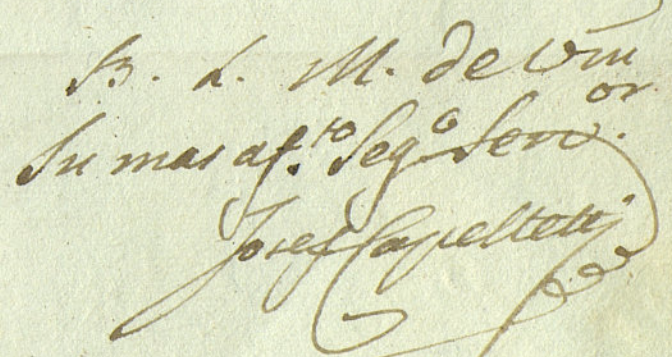 B. L. M. de Vm
Su mas af.to Seg.o Serv.or
Josef Capelletti